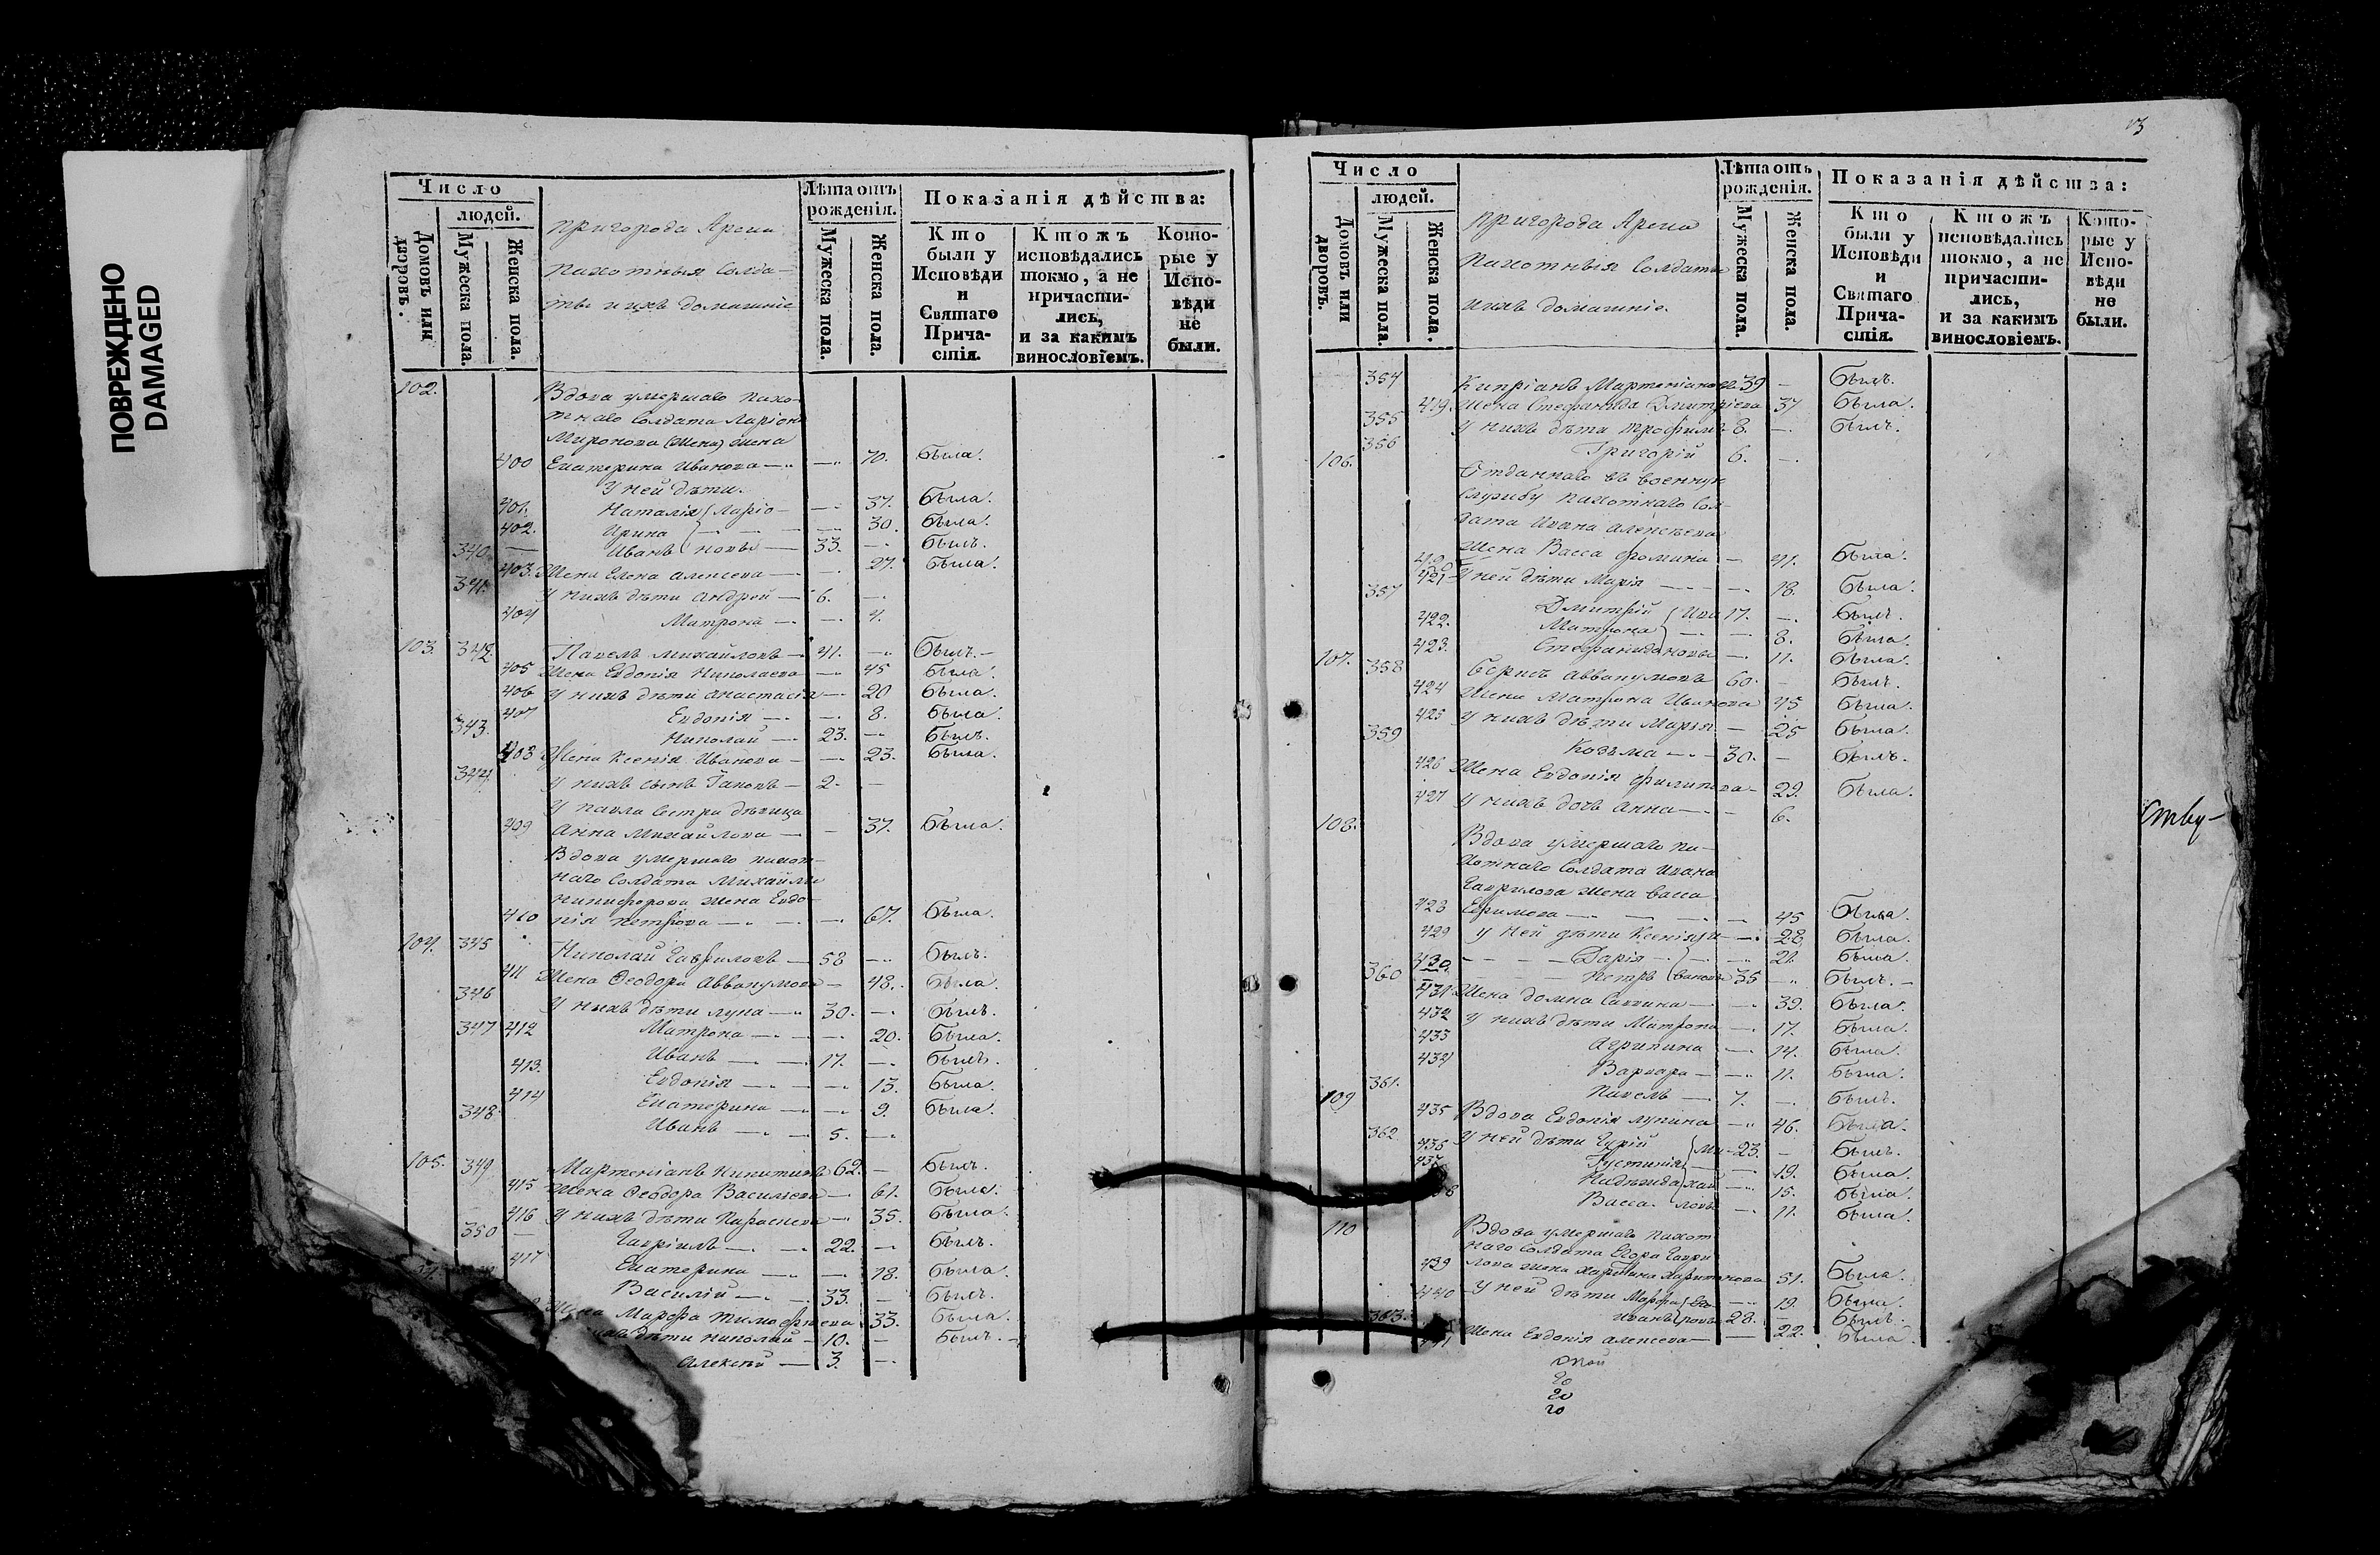 ПОВРЕЖДЕНО
DAMAGED
Число
людей.
Домовъ или дворовъ.
Мужеска пола.
Женска пола.
пригорода Арска
пахотныя солда-
ты и ихъ домашніе
Лѣта отъ рожденія.
Мужеска пола.
Женска пола.
Показанія дѣйства:
Кто были у Исповѣди и Святаго Причастія.
Ктожъ исповѣдались токмо, а не причастились, и за какимъ винословіемъ.
Которые у Исповѣди не были.
102. Вдова умершаго пахо-
тнаго солдата Ларіона
Миронова (жена) жена
400 Екатерина Иванова — — 70. была.
У ней дѣти.
401. Наталія Ларіо- — 37. была.
402. Ирина — — 30. была.
340. Иванъ новы — 33. — былъ.
403. Жена Елена Алексеева — — 27. была.
341. У нихъ дѣти Андрей — 6. —
404 Матрона — — 4.
103. 342. Павелъ Михайловъ — 41. — былъ. —
405 Жена Евдокія Николаева — 45 была.
406 У нихъ дѣти Анастасія — 20 была.
407 Евдокія — — 8. была.
343. Николай — 23. — былъ.
408 Жена Ксенія Иванова — — 23. была.
344. У нихъ сынъ Іаковъ — 2. —
У павла сестра дѣвица
409 Анна Михайлова — — 37. была.
Вдова умершаго пахот-
наго солдата Михайлы
Никифорова жена Евдо-
410 кія Петрова — — — 67. была.
104. 345 Николай Гавриловъ — 58 — былъ.
411 Жена Феодора Аввакумова — 48. была.
346 У нихъ дѣти Лука — 30. — былъ.
347 412 Матрона — — 20. была.
Иванъ — 17. — былъ.
413. Евдокія — — 13. была.
414 Екатерина — — 9. была.
348 Иванъ — 5. —
105. 349 Мартеніанъ Никитинъ 62. — былъ.
415 Жена Феодора Васильева — 61. была.
416 У нихъ дѣти Параскева — 35. была.
350 — Гавріилъ — 22. — былъ.
417 Екатерина — — 18. была.
Василій — 33. — былъ.
Марфа Тимофѣева 33. была.
дѣти Николай — 10. — былъ. —
Алексѣй — 3. —
13
Число
людей.
Домовъ или дворовъ.
Мужеска пола.
Женска пола.
пригорода Арска
пахотныя солдаты
и ихъ домашніе.
Лѣта отъ рожденія.
Мужеска пола.
Женска пола.
Показанія дѣйства:
Кто были у Исповѣди и Святаго Причастія.
Ктожъ исповѣдались токмо, а не причастились, и за какимъ винословіемъ.
Которые у Исповѣди не были.
354 Кипріанъ Мартеніановъ 39 — былъ.
419 Жена Стефанида Дмитріева 37 была.
355 У нихъ дѣти Трофимъ 8. — былъ.
356 Григорій 6. —
106. Отданнаго въ военную
службу пахотнаго сол-
дата Ивана Алексѣева
Жена Васса Фомина — 41. была.
421 У ней дѣти Марія — — 18. была.
357 Дмитрій Ива 17. — былъ.
422. Матрона — — 8. была.
423. Стефанида новы — 11. была.
107. 358 Борисъ Аввакумовъ 60. — былъ.
424 Жена Матрона Иванова 45 была.
425 У нихъ дѣти Марія — 25 была.
359 Козьма — 30. — былъ.
426 Жена Евдокія Филипова — 29. была.
427 У нихъ дочь Анна — — 6.
108. Вдова умершаго па-
хотнаго солдата Ивана
Гаврилова жена Васса
428 Ефимова — — 45 была.
429 У ней дѣти Ксенія И — 28. была.
430. Дарія — — 21. была.
360 Петръ вановы 35 — былъ. —
431 Жена Домна Саввина — — 39. была.
432 У нихъ дѣти Матрона — 17. была.
433 Агрипина — 14. была.
434 Варвара — — 11. была.
361. Павелъ — 7. — былъ.
109 435 Вдова Евдокія Лукина — 46. была.
362. 436 У ней дѣти Гурій Ми- 23. — былъ.
437 Іустинія — — 19. была.
Надежда хай — 15. была.
Васса ловы — 11. была.
110 Вдова умершаго пахот
наго солдата Егора Гаври
439 лова жена Харитина Харитонова 51. была.
440 У ней дѣти Марфа Его- — 19. была.
363. Иванъ ровы 28. — былъ.
441 Жена Евдокія Алексеева — — 22. была.
20
20